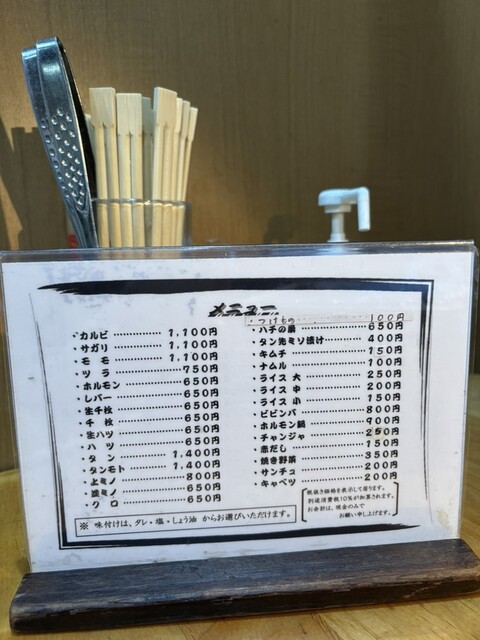 ・つけもの 100円
・カルビ 1,100円
・サガリ 1,100円
・モモ 1,100円
・ツラ 750円
・ホルモン 650円
・レバー 650円
・生千枚 650円
・千枚 650円
・生ハツ 650円
・ハツ 650円
・タン 1,400円
・タンモト 1,400円
・上ミノ 800円
・並ミノ 650円
・クロ 650円
・ハチの巣 650円
・タン先ミソ漬け 400円
・キムチ 150円
・ナムル 100円
・ライス 大 250円
・ライス 中 200円
・ライス 小 150円
・ビビンバ 800円
・ホルモン鍋 900円
・チャンジャ 250円
・赤だし 150円
・焼き野菜 350円
・サンチョ 200円
・キャベツ 200円
※ 味付けは、タレ・塩・しょう油 からお選びいただけます。
税抜き価格を表示して居ります。
別途消費税10%が加算されます。
お会計は、現金のみで
お願い申し上げます。